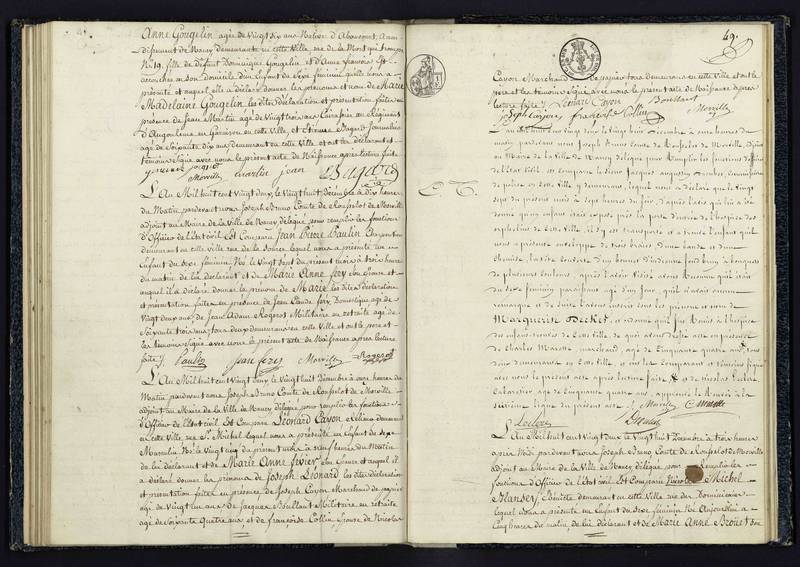 Anne Gougelin agée de Vingt six ans Native d'Abaucourt, Arron
dissement de Nancy demeurante en cette Ville, rue de la
N.º 19, fille de défunt Dominique Gougelin et d'Anne françois Est
accouchée en son domicile d'un Enfant de Sexe féminin qu'elle nous a
présenté et auquel elle a déclaré donner les prénoms et nom de Marie
Madelaine Gougelin, les dites déclaration et présentation faites en
présence de Jean Martin agé de Vingt trois ans au Régiment
d'Angouleme en Garnison en cette Ville, et Etienne Bagard Journalier
agé de Soixante dix ans demeurant en cette Ville et ont les déclarant et
témoins Signé avec nous le présent acte de Naissance après lecture faite
Morville martin jean E Bagard
L'An Mil huit cent Vingt deux, le Vingt huit Décembre à dix heures
du Matin, pardevant nous Joseph Bruno Comte de Rousselot de Morville
adjoint au Maire de la Ville de Nancy délégué pour remplir les fonctions
d'Officier de l'état civil Est Comparu Jean Pierre Paulin Charpentier
demeurant en cette Ville rue de la lequel nous a présenté un
Enfant du Sexe féminin, Né le Vingt Sept du présent mois à trois heures
du matin de lui déclarant et de Marie Anne fery son Epouse et
auquel il a déclaré donner le prénom de Marie les dites déclaration
et présentation faites en présence de Jean Claude fery Domestique agé de
Vingt deux ans, de Jean Adam Rogerot Militaire en retraite agé de
Soixante trois ans, tous deux demeurans en cette Ville et ont le père et
les témoins Signé avec nous le présent acte de Naissance après lecture
faite ./. Paulin Jean fery Morville Rogerot
L'An Mil huit cent Vingt deux, le Vingt huit Décembre à onze heures du
Matin pardevant nous Joseph Bruno Comte de Rousselot de Morville
adjoint au Maire de la Ville de Nancy délégué pour remplir les fonctions
d'Officier de l'état civil Est Comparu Léonard Cayon Relieur demeurant
en cette Ville, rue S. Michel lequel nous a présenté un Enfant du Sexe
Masculin Né le Vingt cinq du présent mois à neuf heures du Matin
de lui déclarant et de Marie Anne février son Epouse et auquel il
a déclaré donner les prénoms de Joseph Léonard les dites déclaration
et présentation faites en présence de Joseph Cayon Marchand de papier
agé de Vingt huit ans de Jacques Boulland Militaire en retraite
agé de Soixante quatre ans et de françoise Collin Epouse de Nicolas
49.
Cayon Marchand de papier tous demeurans en cette Ville et ont le
père et les témoins Signé avec nous le présent acte de Naissance après
lecture faite ./. Léonard Cayon Boulland
Joseph Cayon françoise Collin Morville
L'an mil huit cent vingt deux le vingt huit Décembre à onze heures du
matin, pardevant nous Joseph Bruno Comte de Rousselot de Morville, adjoint
au Maire de la Ville de Nancy délégué pour Remplir les fonctions d'officier
de l'Etat Civil, est comparu le Sieur Jacques augustin Decker, Commissaire
de police en cette Ville y demeurant, lequel nous a déclaré que le vingt
sept du présent mois à sept heures du soir, d'après l'avis qui lui a été
donné qu'un enfant était exposé près la porte d'entrée de l'hospice des
orphelins de cette Ville, il s'y est transporté et a trouvé l'enfant qu'il
nous a présenté enveloppé de trois langes d'une bande et d'une
Chemise, la tête couverte d'un bonnet d'indienne fond à bouquets
de plusieurs couleurs, après l'avoir visité avons reconnu qu'il était
du sexe féminin paraissant agé d'un jour, qu'il n'avait aucune
remarque et de suite l'avons inscrit sous les prénom et nom de
Marguerite Becket, et ordonné qu'il fut Remis à l'hospice
des enfans trouvés de cette ville, de quoi avons dressé acte en présence
de Charles Marotte, marchand, agé de Cinquante quatre ans, tous
deux demeurans en cette Ville, et ont les comparant et témoins signé
avec nous le présent acte après lecture faite & de Nicolas Leclerc
Cabaretier, agé de Cinquante quatre ans, approuvé le Renvoi à la
dixième ligne du présent acte ./. Morville C. Marotte
Leclerc Decker
L'An Mil huit cent Vingt deux le Vingt huit Décembre à trois heures
après Midi pardevant nous Joseph Bruno Comte de Rousselot de Morville
adjoint au Maire de la Ville de Nancy délégué pour Remplir les
fonctions d'Officier de l'état civil Est Comparu Michel
Hansen Ebéniste demeurant en cette Ville rue des Dominicains
lequel nous a présenté un Enfant du Sexe féminin Né Aujourdhui à
Cinq heures du matin, de lui déclarant et de Marie Anne Brouet Son